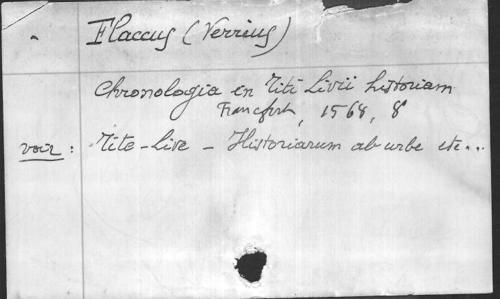 Flaccus (Verrius)
Chronologia en Titi Livii historiam
Francfort, 1568, 8
voir : Tite-Live - Historiarum ab urbe etc...